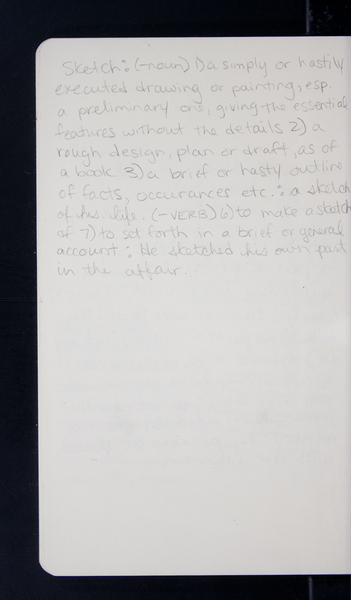 Sketch: (-noun) 1) a simply or hastily
executed drawing or painting, esp.
a preliminary one, giving the essential
features without the details 2) a
rough design, plan or draft, as of
a book 3) a brief or hasty outline
of facts, occurances etc.: a sketch
of his life. (-VERB) 6) to make a sketch
of 7) to set forth in a brief or general
account: He sketched his own part
in the affair.